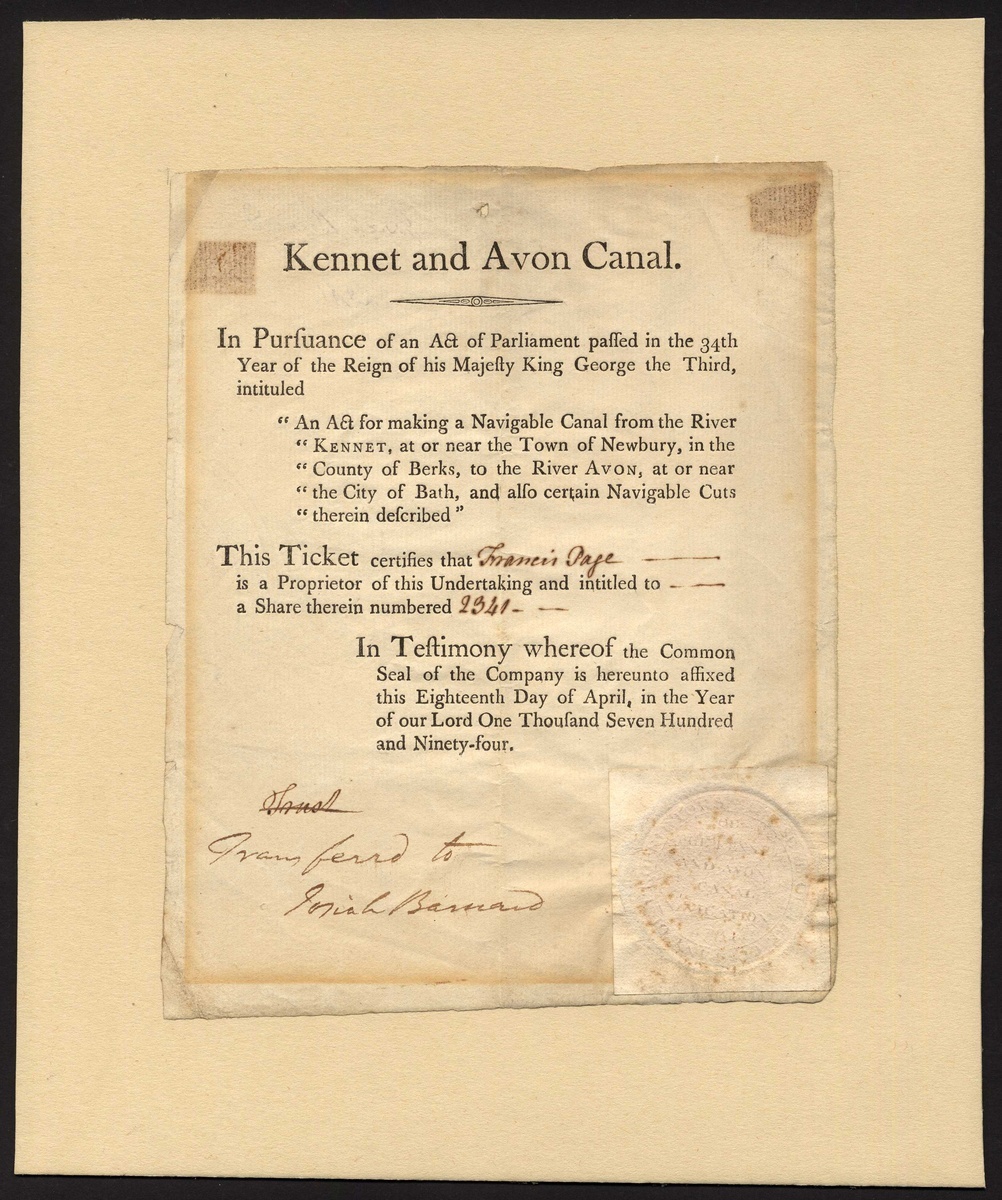 Kennet and Avon Canal.
In Purſuance of an Act of Parliament paſſed in the 34th
Year of the Reign of his Majeſty King George the Third,
intituled
“ An Act for making a Navigable Canal from the River
“ KENNET, at or near the Town of Newbury, in the
“ County of Berks, to the River AVON, at or near
“ the City of Bath, and alſo certain Navigable Cuts
“ therein deſcribed ”
This Ticket certifies that Francis Page —
is a Proprietor of this Undertaking and intitled to - —
a Share therein numbered 2341 - —
In Teſtimony whereof the Common
Seal of the Company is hereunto affixed
this Eighteenth Day of April, in the Year
of our Lord One Thouſand Seven Hundred
and Ninety-four.
Trust
Transferrd to
Josiah Barnard
CANAL